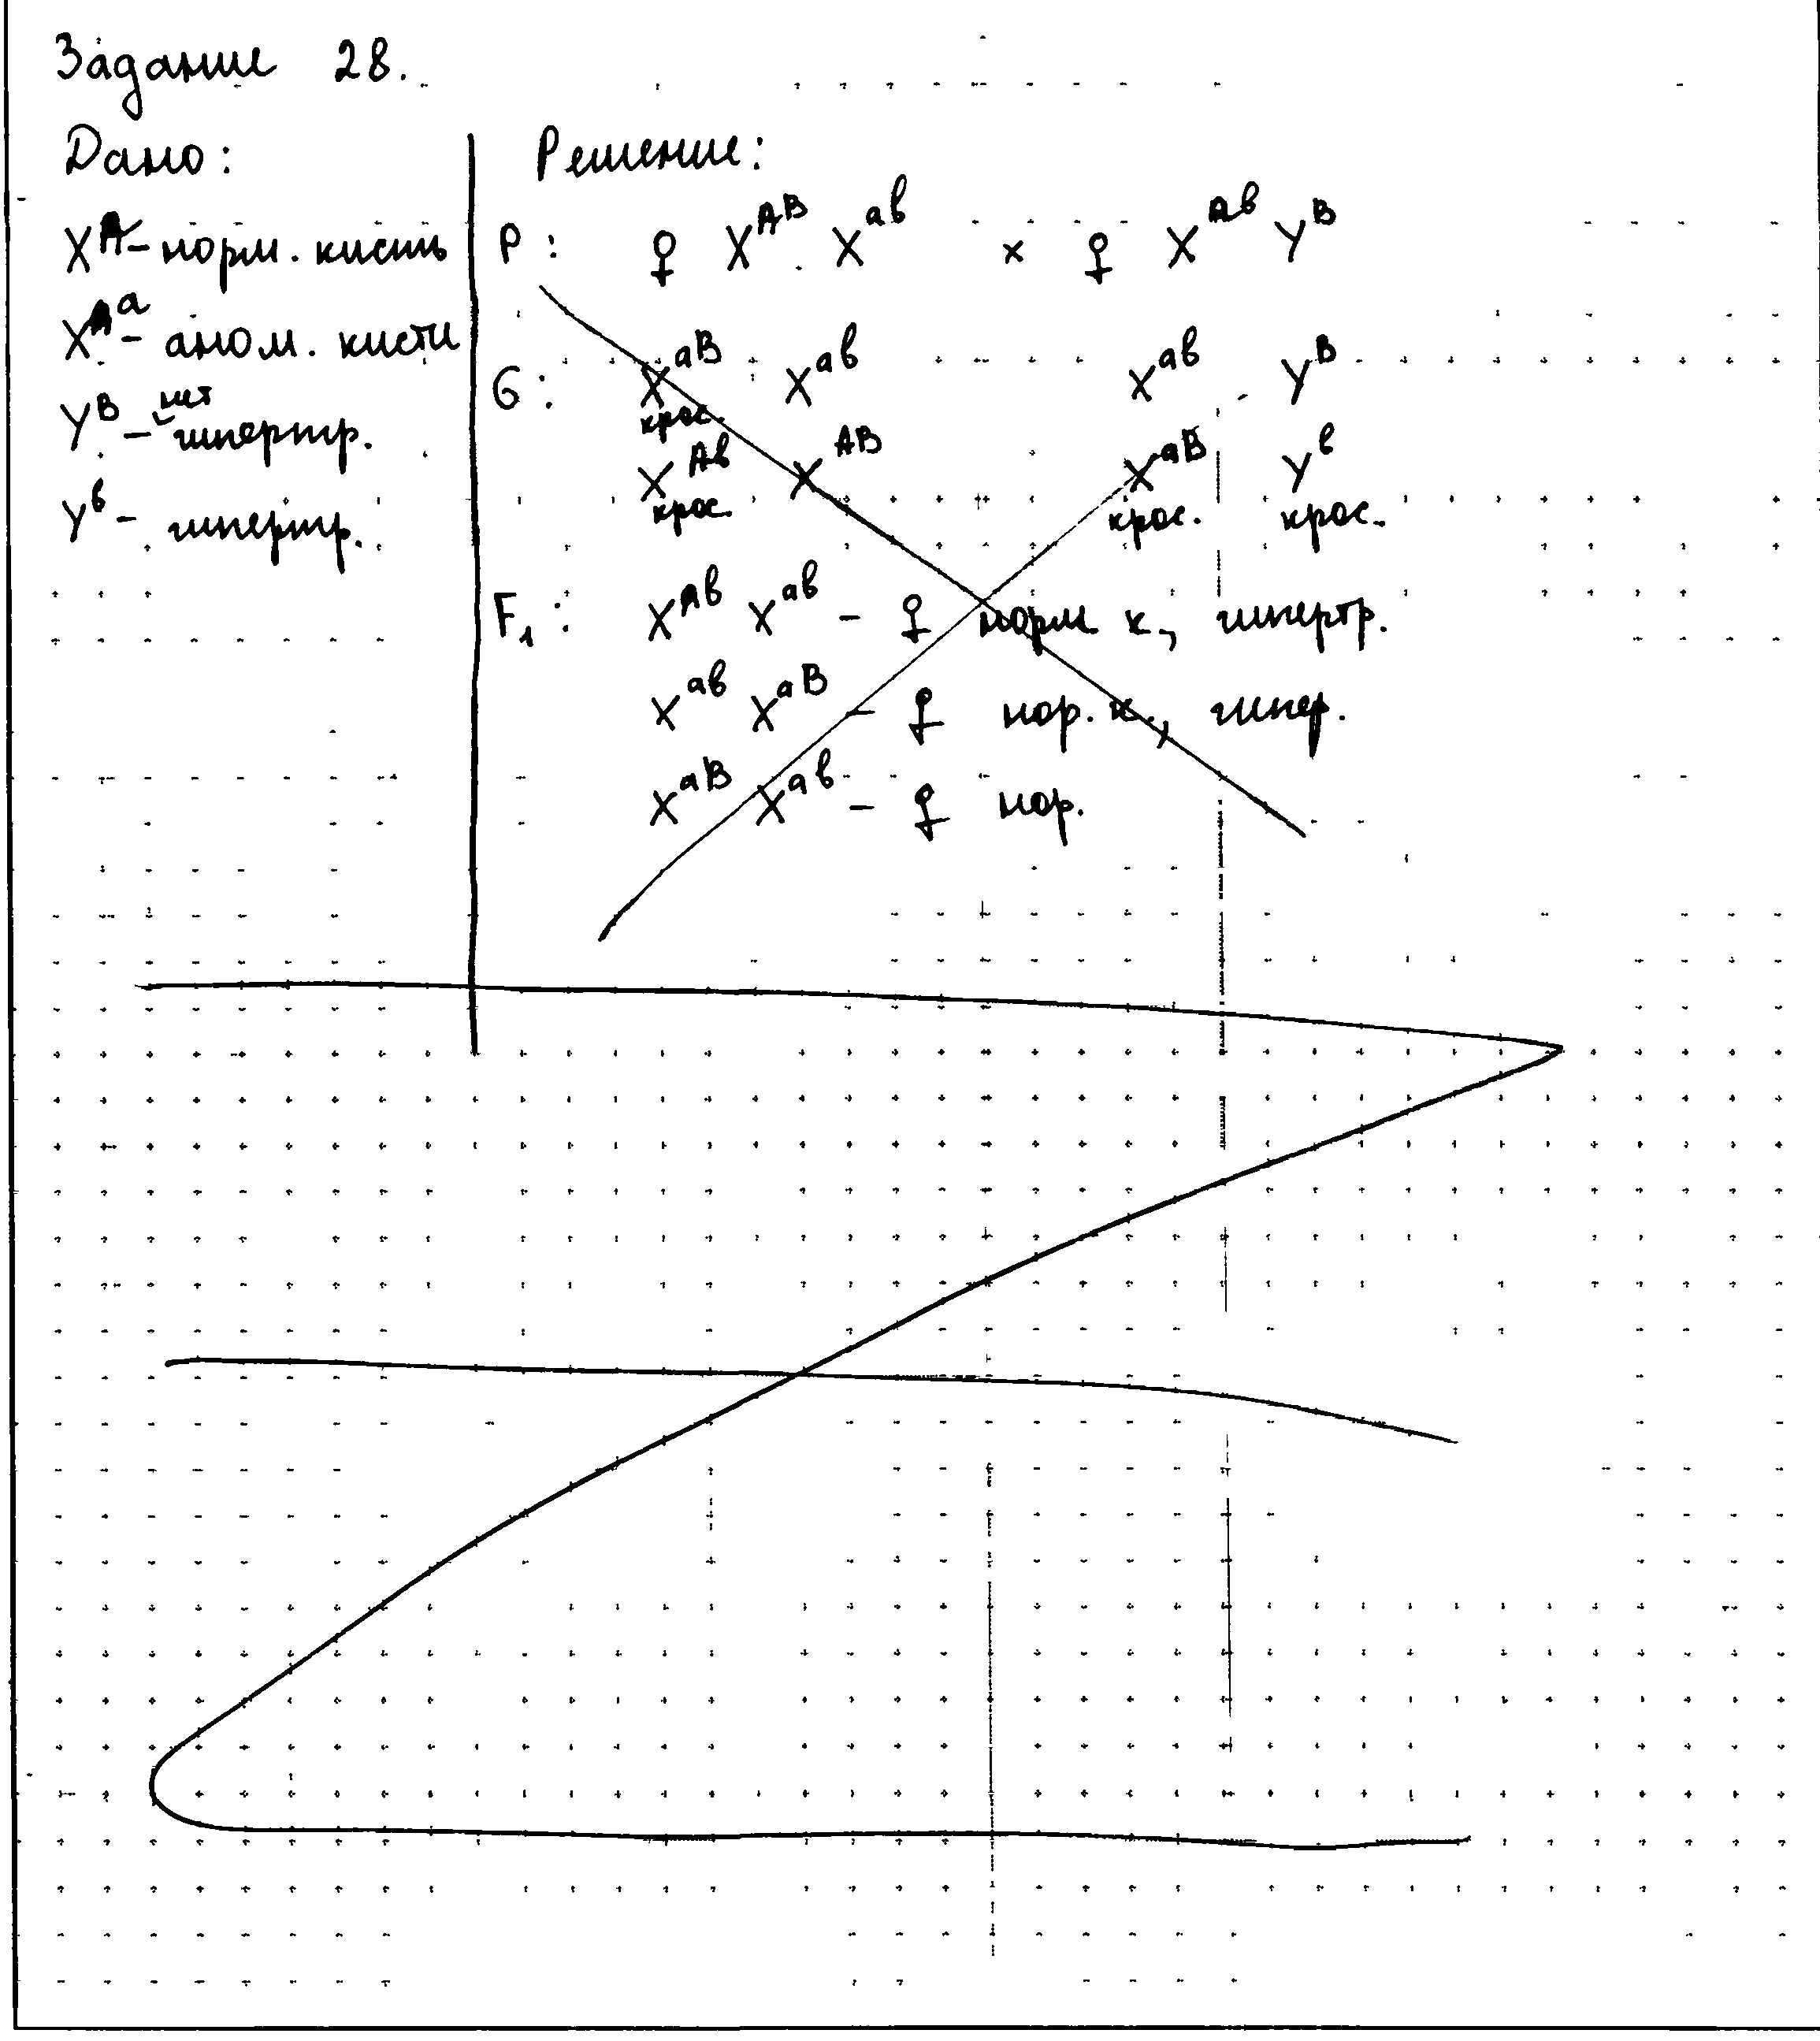 Задание 28.
Дано:
X^A – норм. кисть
X^a – аном. кисти
Y^B – нет гипертр.
Y^b – гипертр.
Решение:
P: ♀ X^AB X^ab × ♀ X^Ab Y^B
G: X^aB X^ab X^ab Y^B
крос.
X^Ab X^AB X^aB Y^b
крос. крос. крос.
F₁: X^Ab X^ab – ♀ норм к, гипертр.
X^ab X^aB – ♀ нор. к., гипер.
X^aB X^ab – ♀ нор.